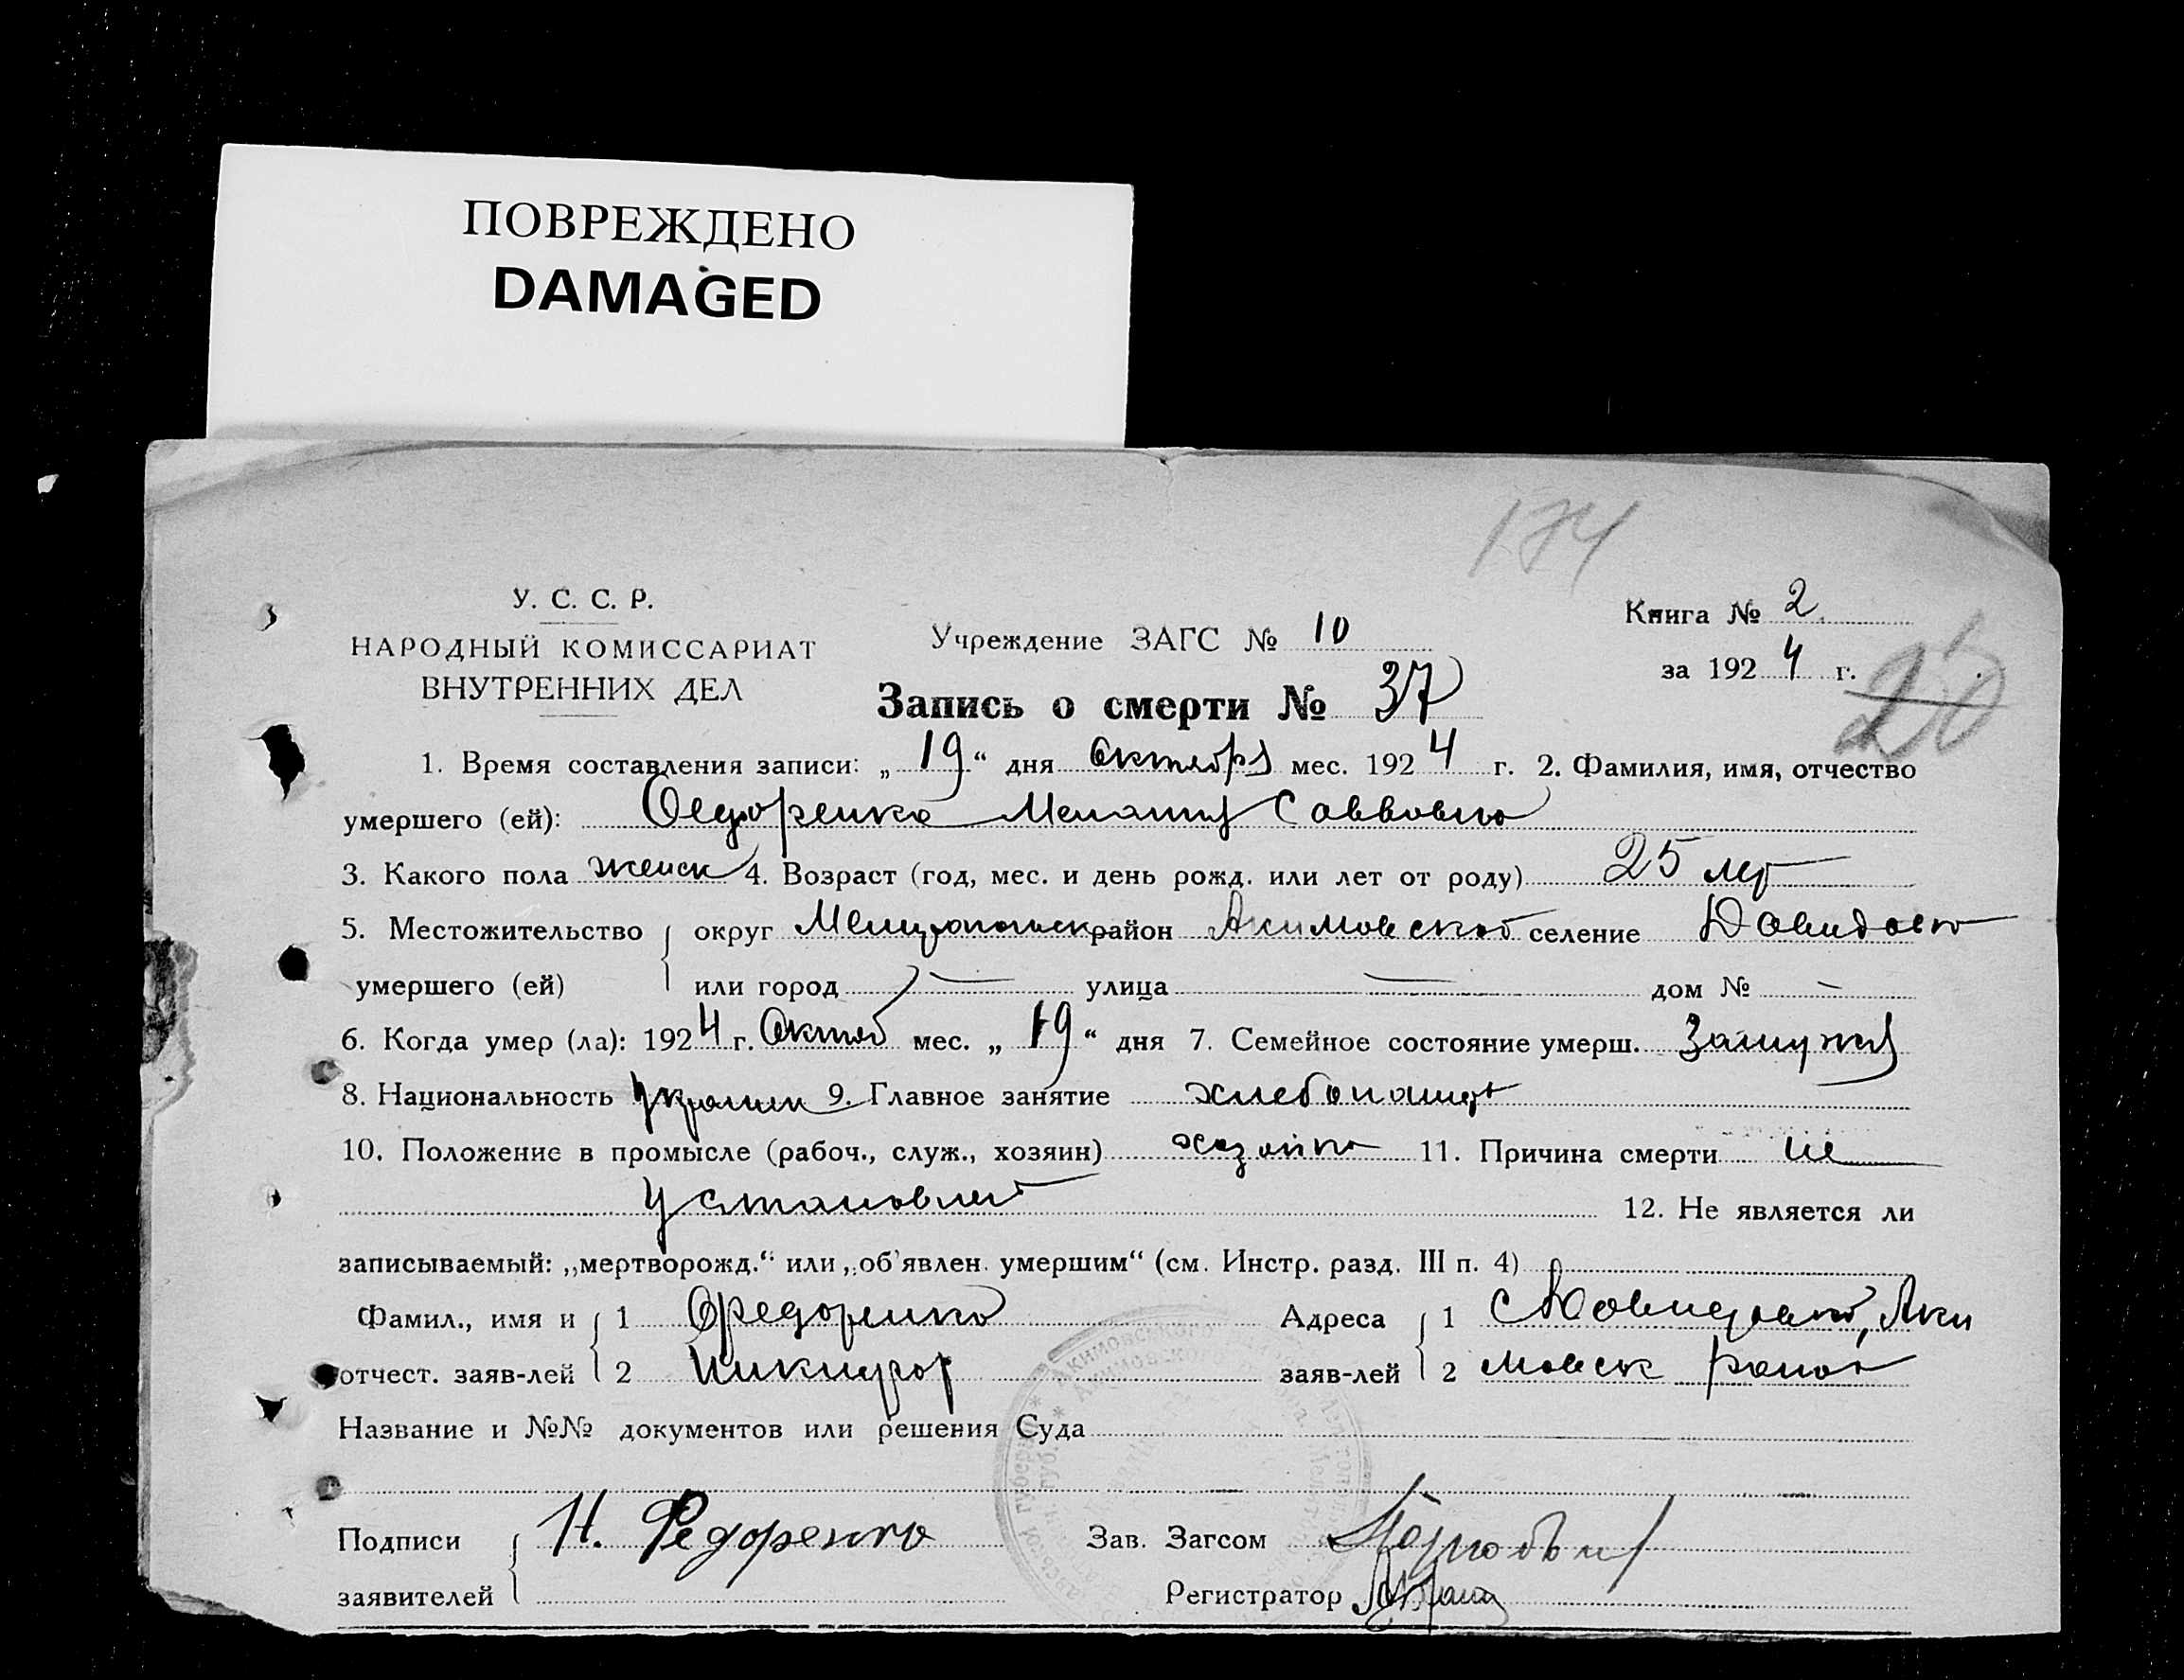 ПОВРЕЖДЕНО
DAMAGED
174
У. С. С. Р.
НАРОДНЫЙ КОМИССАРИАТ
ВНУТРЕННИХ ДЕЛ
Учреждение ЗАГС № 10
Книга № 2.
за 1924 г.
Запись о смерти № 37
1. Время составления записи: „19“ дня Октября мес. 1924 г. 2. Фамилия, имя, отчество
умершего (ей): Федоренко Мелания Саввовна
3. Какого пола женск 4. Возраст (год, мес. и день рожд. или лет от роду) 25 лет
5. Местожительство округ Мелитопольск район Акимовской селение Давидовка
умершего (ей) или город — улица — дом № —
6. Когда умер (ла): 1924 г. Октяб мес. „19“ дня 7. Семейное состояние умерш. Замужня
8. Национальность Украин 9. Главное занятие хлебопашц
10. Положение в промысле (рабоч., служ., хозяин) хозяйка 11. Причина смерти не
установлен
12. Не является ли
записываемый: „мертворожд.“ или „об'явлен. умершим“ (см. Инстр. разд. III п. 4)
Фамил., имя и 1 Федоренко Адреса 1 с Давидовка, Аки
отчест. заяв-лей 2 Никифор заяв-лей 2 мовск район
Название и №№ документов или решения Суда
Подписи Н. Федоренко Зав. Загсом
заявителей Регистратор